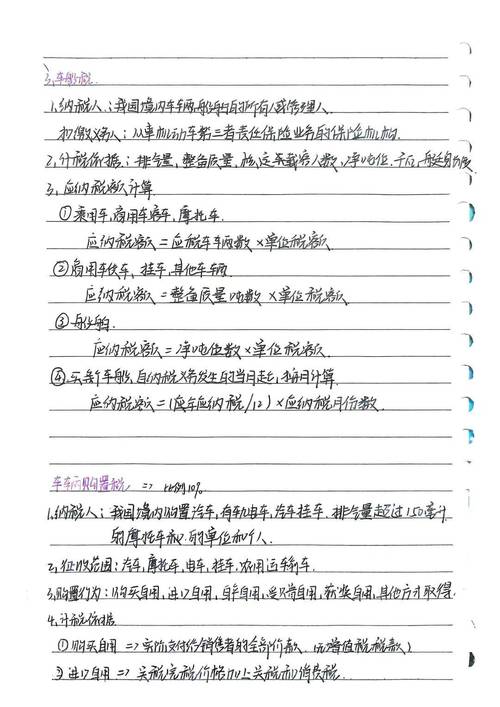 3、车船税
1、纳税人：我国境内车辆、船舶的所有人或管理人
扣缴义务人：从事机动车第三者责任保险业务的保险机构.
2、计税依据：排气量，整备质量，核定载客人数，净吨位，千瓦，艇身长度
3、应纳税额计算
①乘用车，商用车客车，摩托车.
应纳税额＝应税车车辆数×单位税额
②商用车货车，挂车，其他车辆
应纳税额＝整备质量吨数×单位税额
③船舶.
应纳税额＝净吨位数×单位税额.
④买新车船，自纳税义务发生的当月起，按月计算.
应纳税额＝(年应纳税/12)×应纳税月份数.
车车辆购置税 => 比例10%
1、纳税人：我国境内购置汽车，有轨电车，汽车挂车，排气量超过150毫升
的摩托车的单位和个人.
2、征收范围：汽车，摩托车，电车，挂车，农用运输车.
3、购置行为：购买自用，进口自用，自产自用，受赠自用，获奖自用，其他方式取得.
4、计税依据
①购买自用 => 实际支付给销售者的全部价款.（无增值税税款）
②进口自用 => 关税完税价格加上关税和消费税.